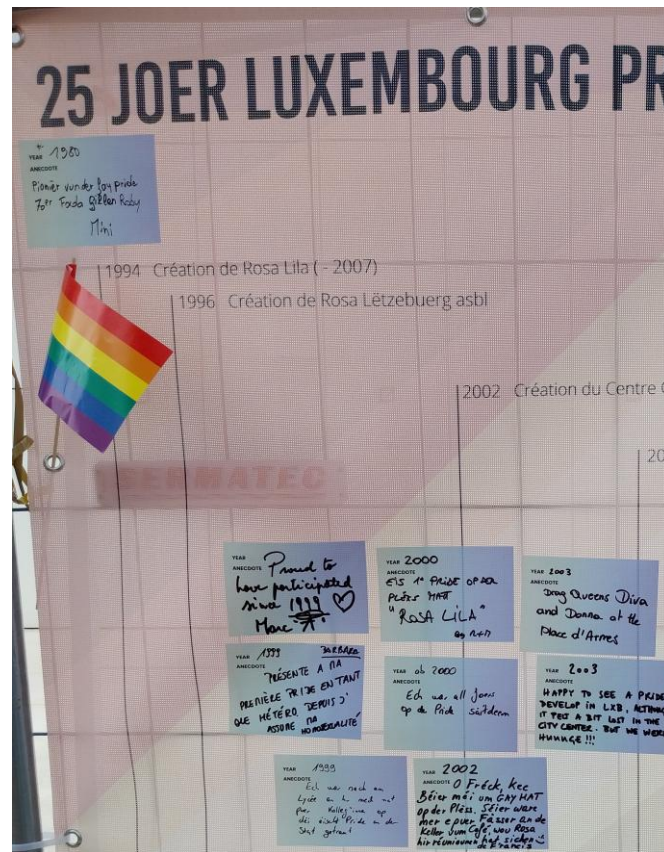 25 JOER LUXEMBOURG PR
YEAR 1980
ANECDOTE
Pionéer vun der Gay pride
Mini
1994 Création de Rosa Lila ( - 2007)
1996 Création de Rosa Lëtzebuerg asbl
2002 Création du Centre
20
GERMATEC
YEAR
ANECDOTE Proud to
have participated
since 1999
Marc
YEAR 2000
ANECDOTE
EIS 1° PRIDE OP DER
PLËSS MATT
"ROSA LILA"
YEAR 2003
ANECDOTE
Drag Queens Diva
and Donna at the
Place d'Armes
YEAR 1999 BARBARA
ANECDOTE
PRÉSENTE A MA
PREMIÈRE PRIDE EN TANT
QUE HÉTÉRO, DEPUIS J'
ASSUME MA
HOMOSEXUALITÉ
YEAR ob 2000
ANECDOTE
Ech war all Joers
op de Pride säitdeem
YEAR 2003
ANECDOTE
HAPPY TO SEE A PRIDE
DEVELOP IN LXB, ALTHOUG
IT FELT A BIT LOST IN THE
CITY CENTER. BUT WE WERE
HUUUGE !!!
YEAR 1999
ANECDOTE
Ech war nach am
Lycée an hu mech mat
puer Kolleginne op
déi éischt Pride an der
Stat getraut
YEAR 2002
ANECDOTE O Fréck, kee
Béier méi um GAY MAT
op der Plëss. Séier ware
mer e puer Fässer an de
Keller vum Café, wou Rosa
hir réuniounen hat, sichen
de Francis